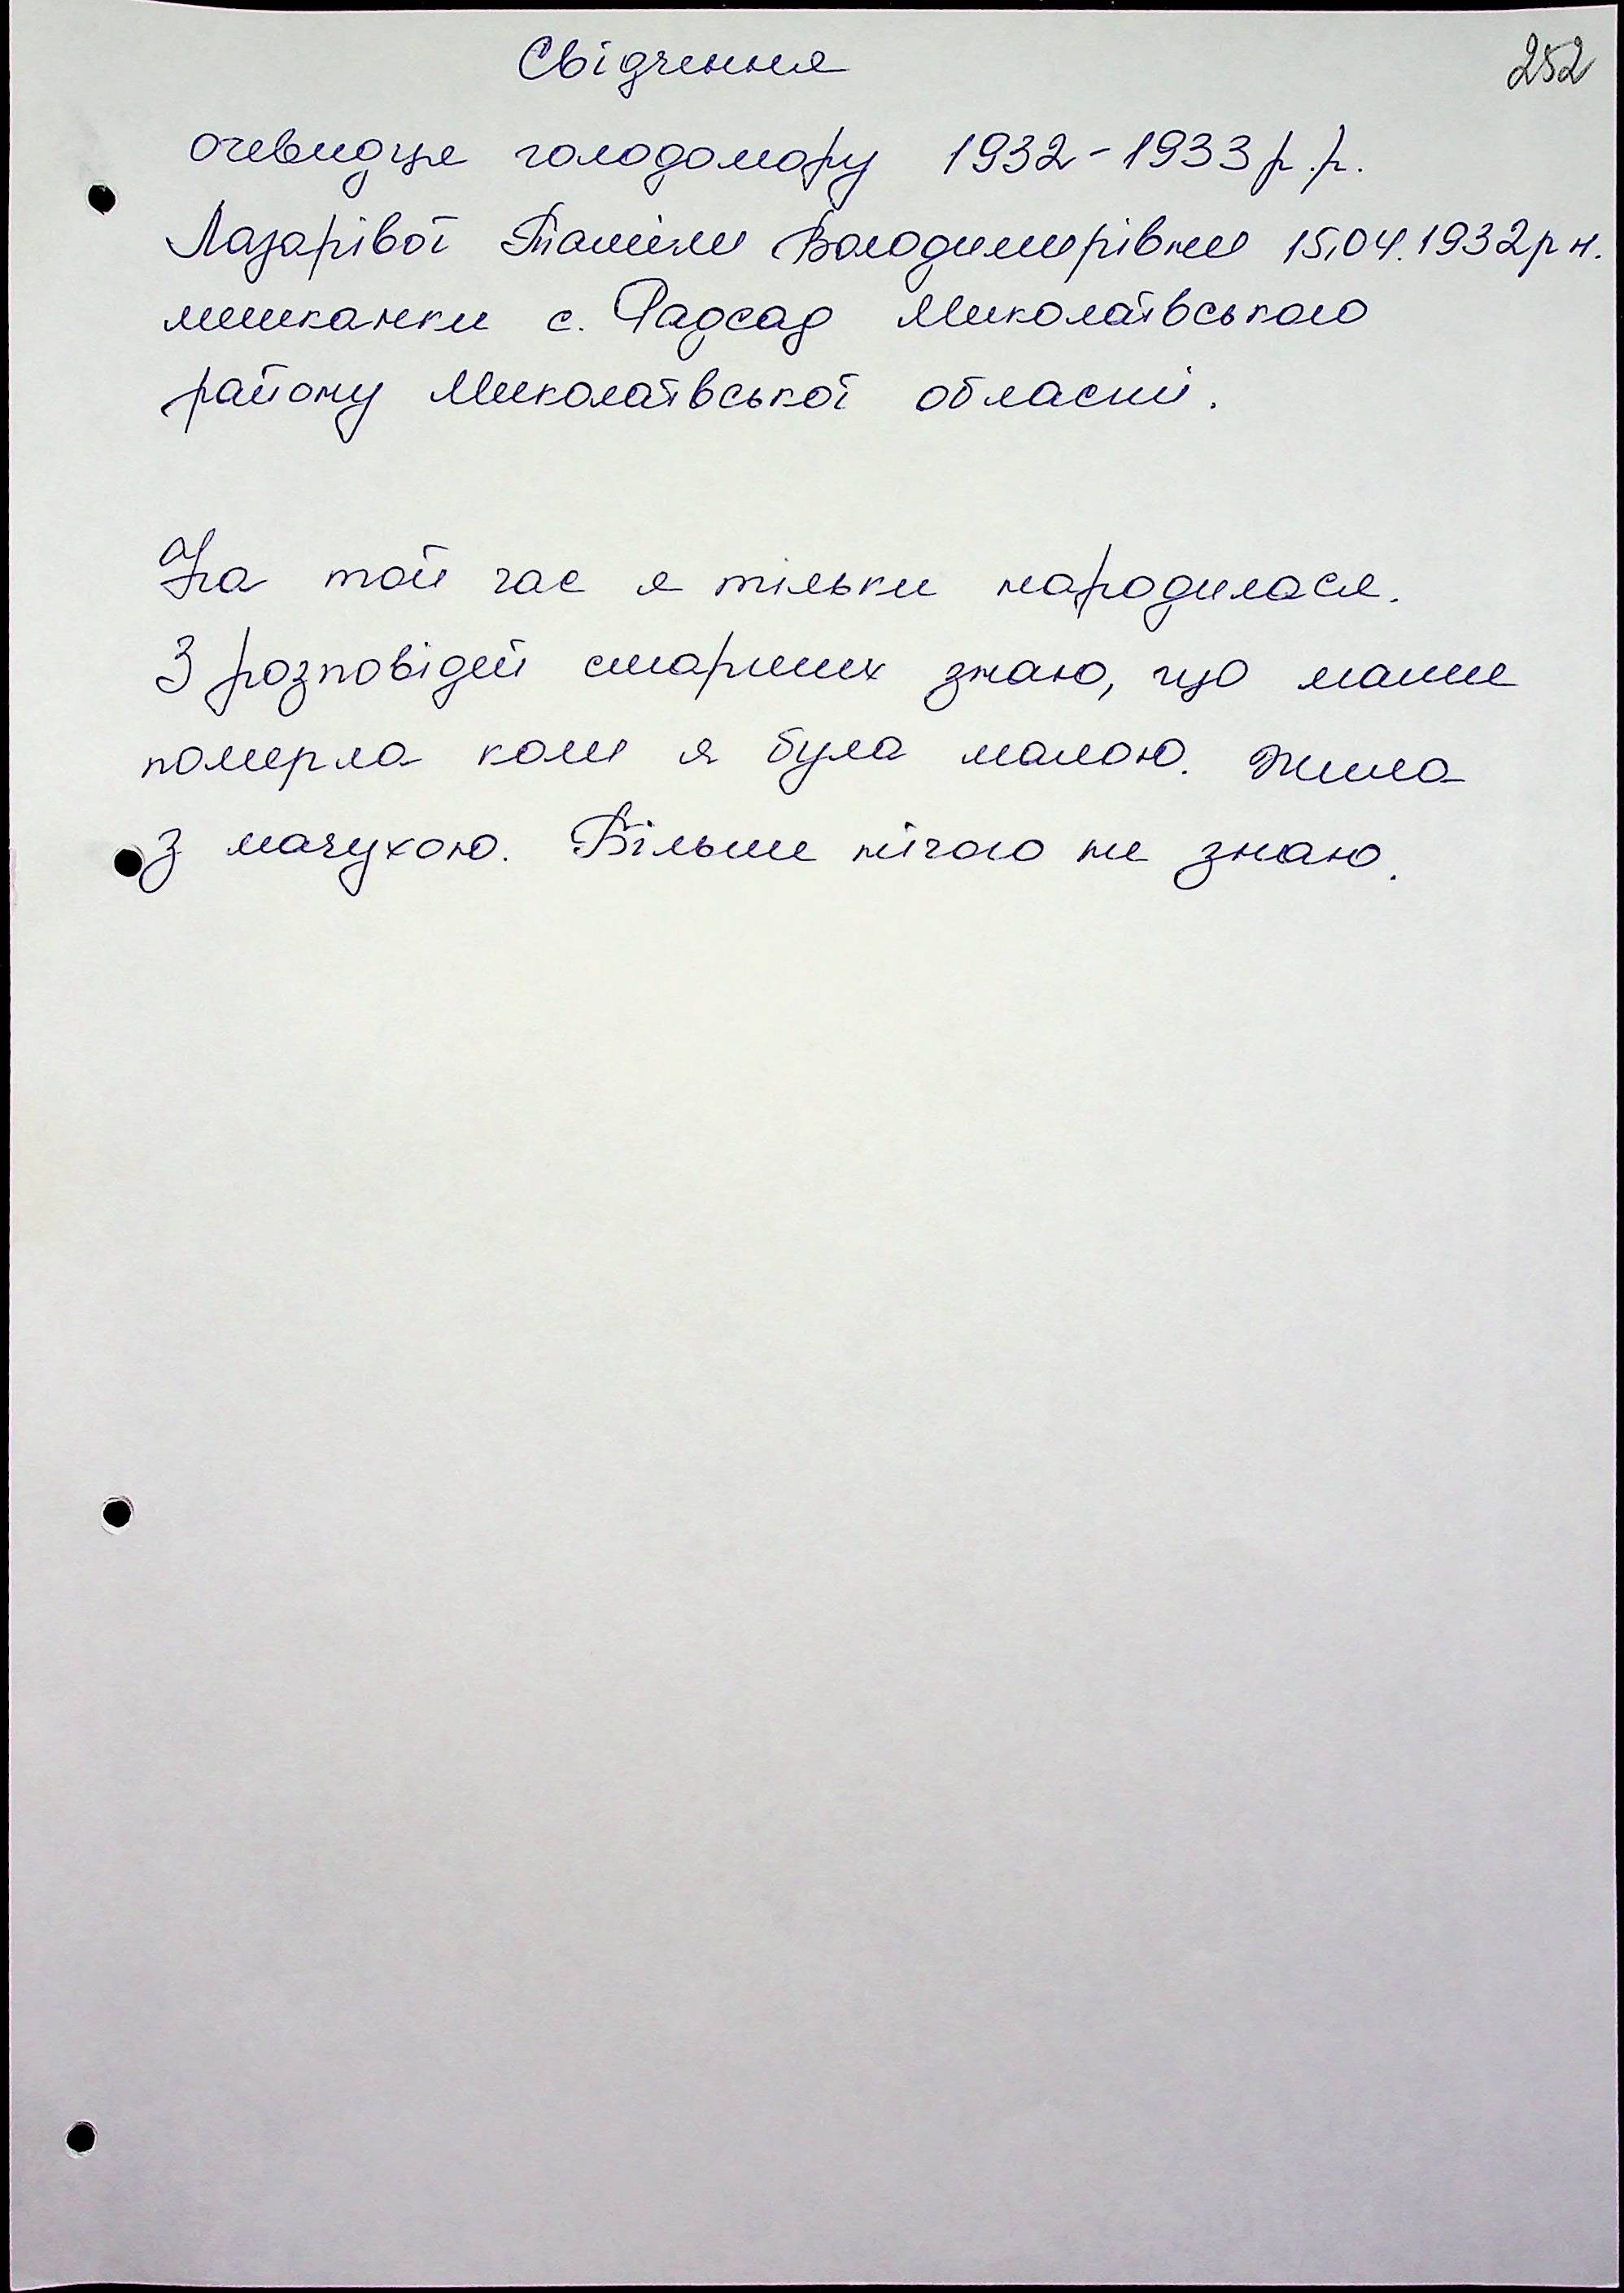 252
Свідчення
очевидця голодомору 1932-1933 р.р.
Лазарівої Таміли Володимирівни 15.04.1932 р н.
мешканки с. Радсад Миколаївського
району Миколаївської області.
На той час я тільки народилася.
З розповідей старших знаю, що мати
померла коли я була малою. Жила
з мачухою. Більше нічого не знаю.